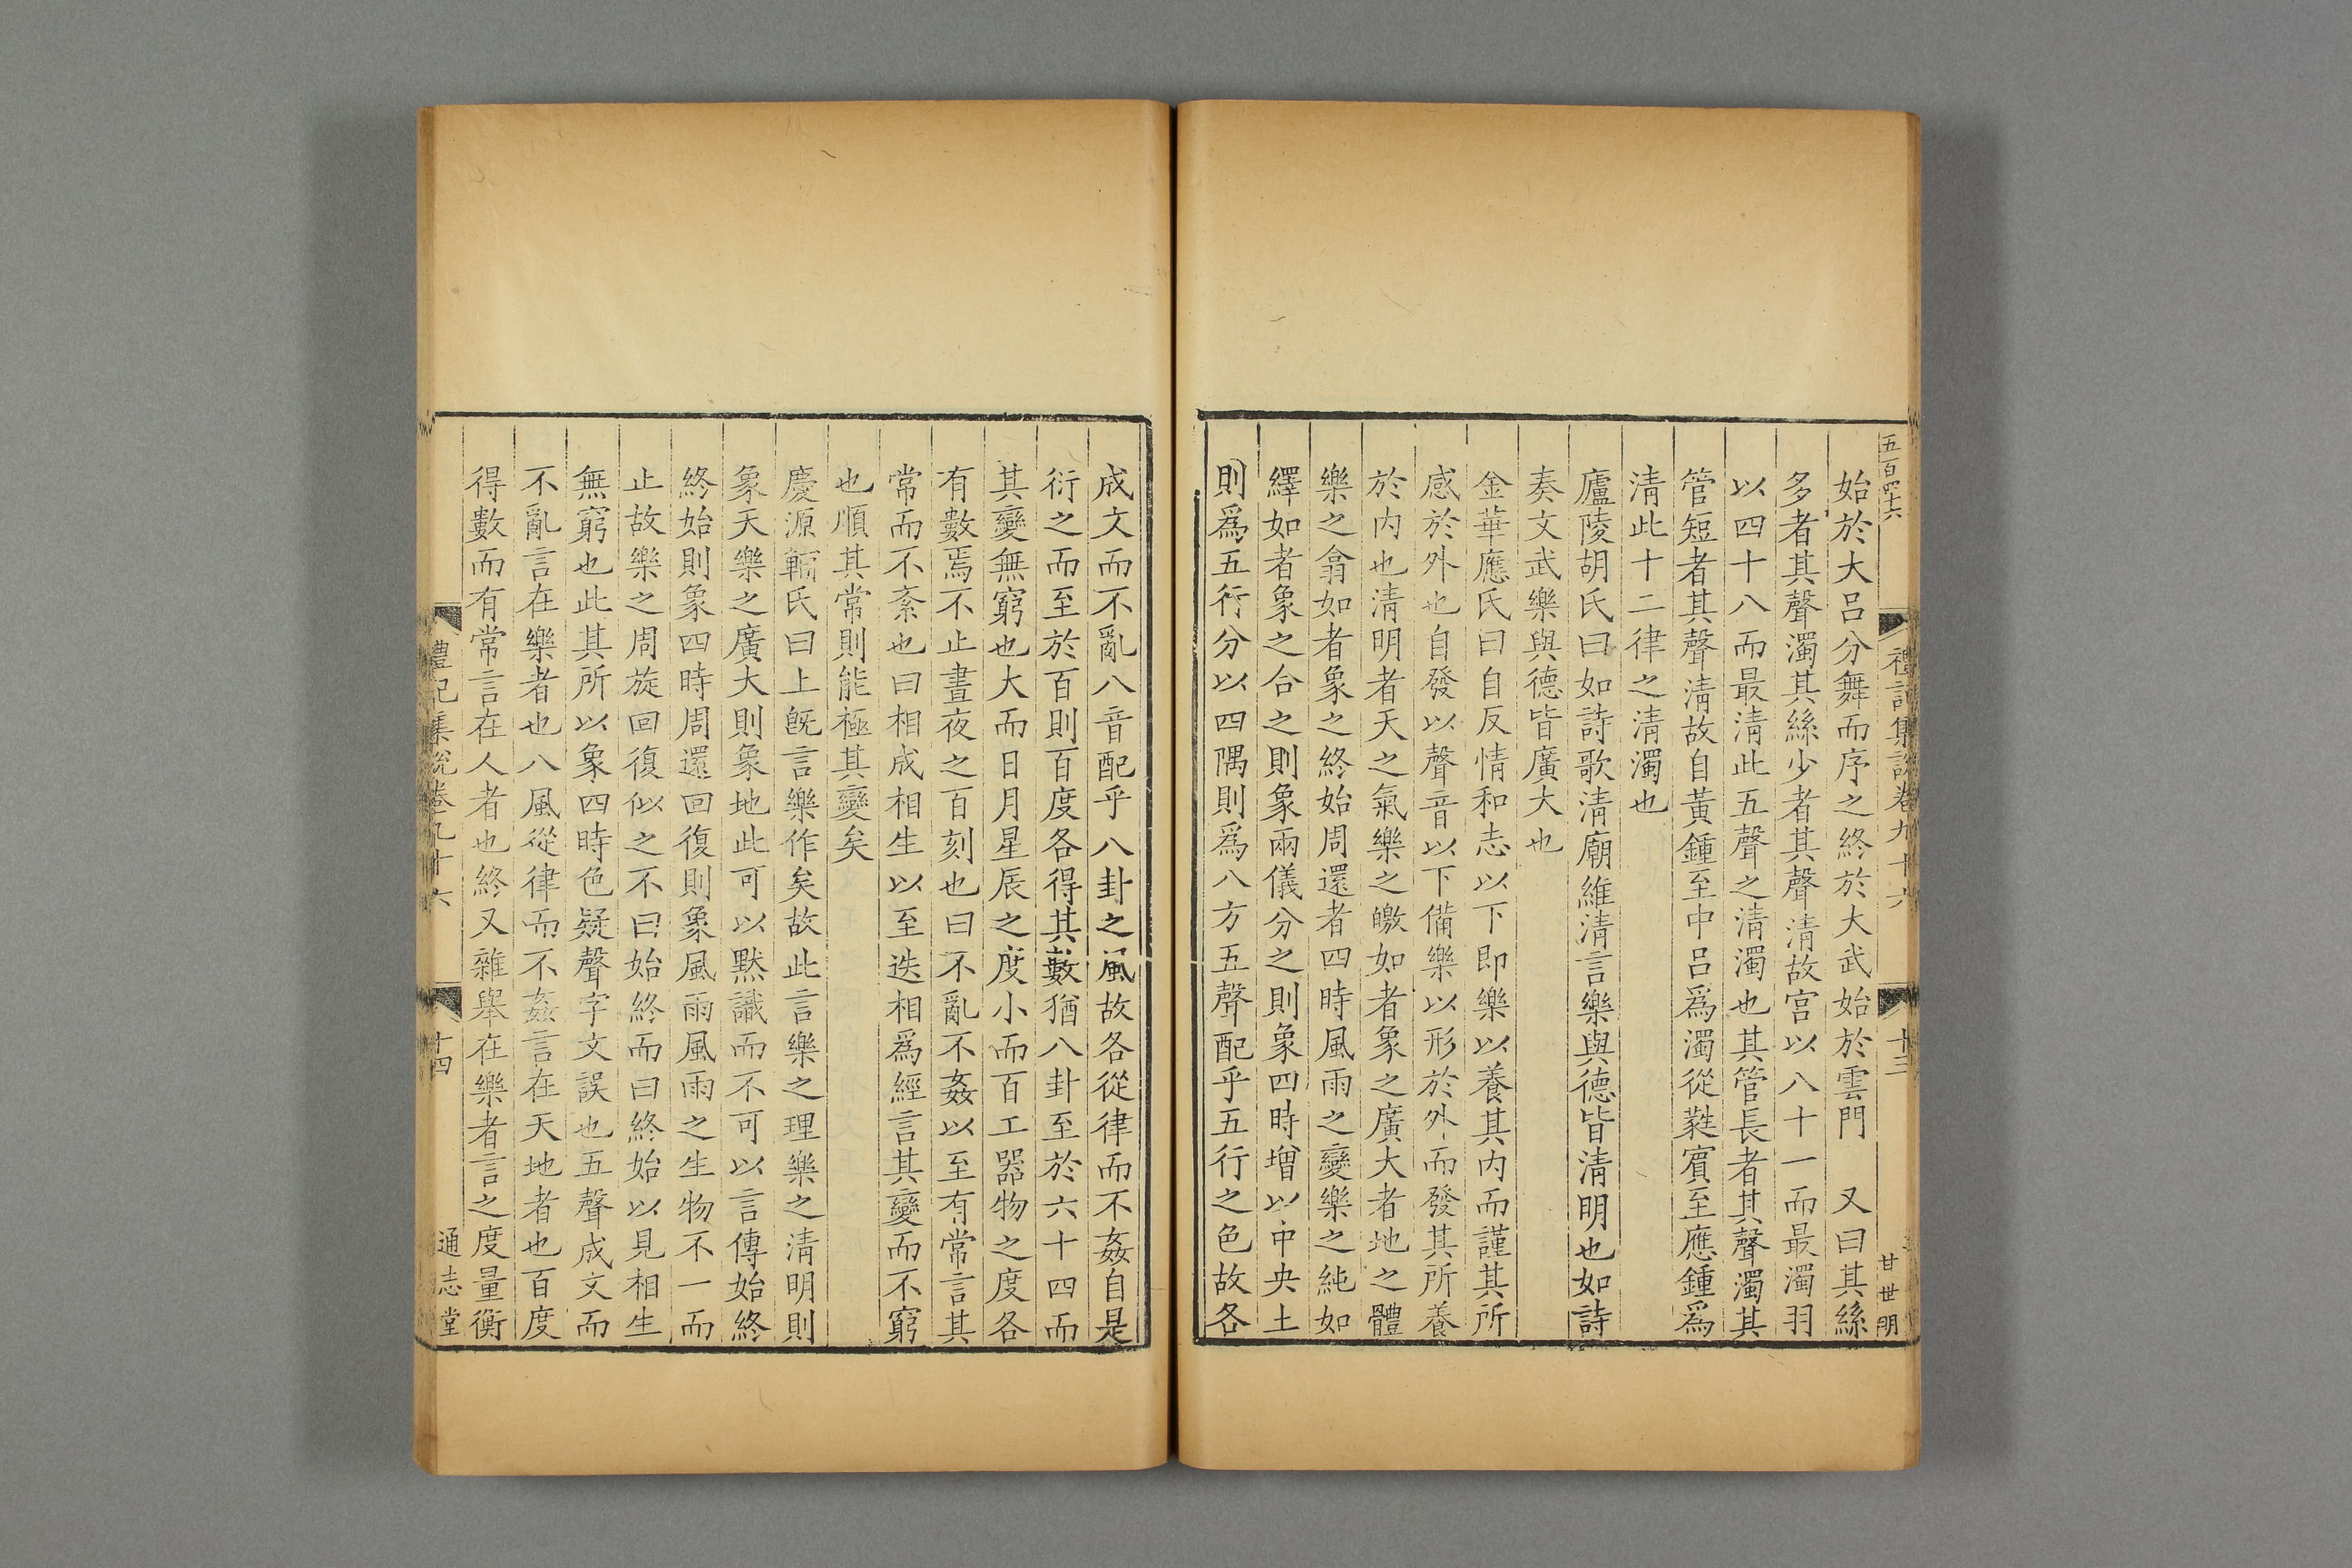 五百四十六
禮記集說卷九十六
十三
甘世明
始於大呂分舞而序之終於大武始於雲門　又曰其絲
多者其聲濁其絲少者其聲清故宮以八十一而最濁羽
以四十八而最清此五聲之清濁也其管長者其聲濁其
管短者其聲清故自黃鍾至中呂爲濁從蕤賓至應鍾爲
清此十二律之清濁也
廬陵胡氏曰如詩歌清廟維清言樂與德皆清明也如詩
奏文武樂與德皆廣大也
金華應氏曰自反情和志以下即樂以養其内而謹其所
感於外也自發以聲音以下備樂以形於外而發其所養
於内也清明者天之氣樂之皦如者象之廣大者地之體
樂之翕如者象之終始周還者四時風雨之變樂之純如
繹如者象之合之則象兩儀分之則象四時增以中央土
則爲五行分以四隅則爲八方五聲配乎五行之色故各
成文而不亂八音配乎八卦之風故各從律而不姦自是
衍之而至於百則百度各得其數猶八卦至於六十四而
其變無窮也大而日月星辰之度小而百工器物之度各
有數焉不止晝夜之百刻也曰不亂不姦以至有常言其
常而不紊也曰相成相生以至迭相爲經言其變而不窮
也順其常則能極其變矣
慶源輔氏曰上旣言樂作矣故此言樂之理樂之清明則
象天樂之廣大則象地此可以黙識而不可以言傳始終
終始則象四時周還回復則象風雨風雨之生物不一而
止故樂之周旋回復似之不曰始終而曰終始以見相生
無窮也此其所以象四時色疑聲字文誤也五聲成文而
不亂言在樂者也八風從律而不姦言在天地者也百度
得數而有常言在人者也終又雜舉在樂者言之度量衡
禮記集說卷九十六
十四
通志堂